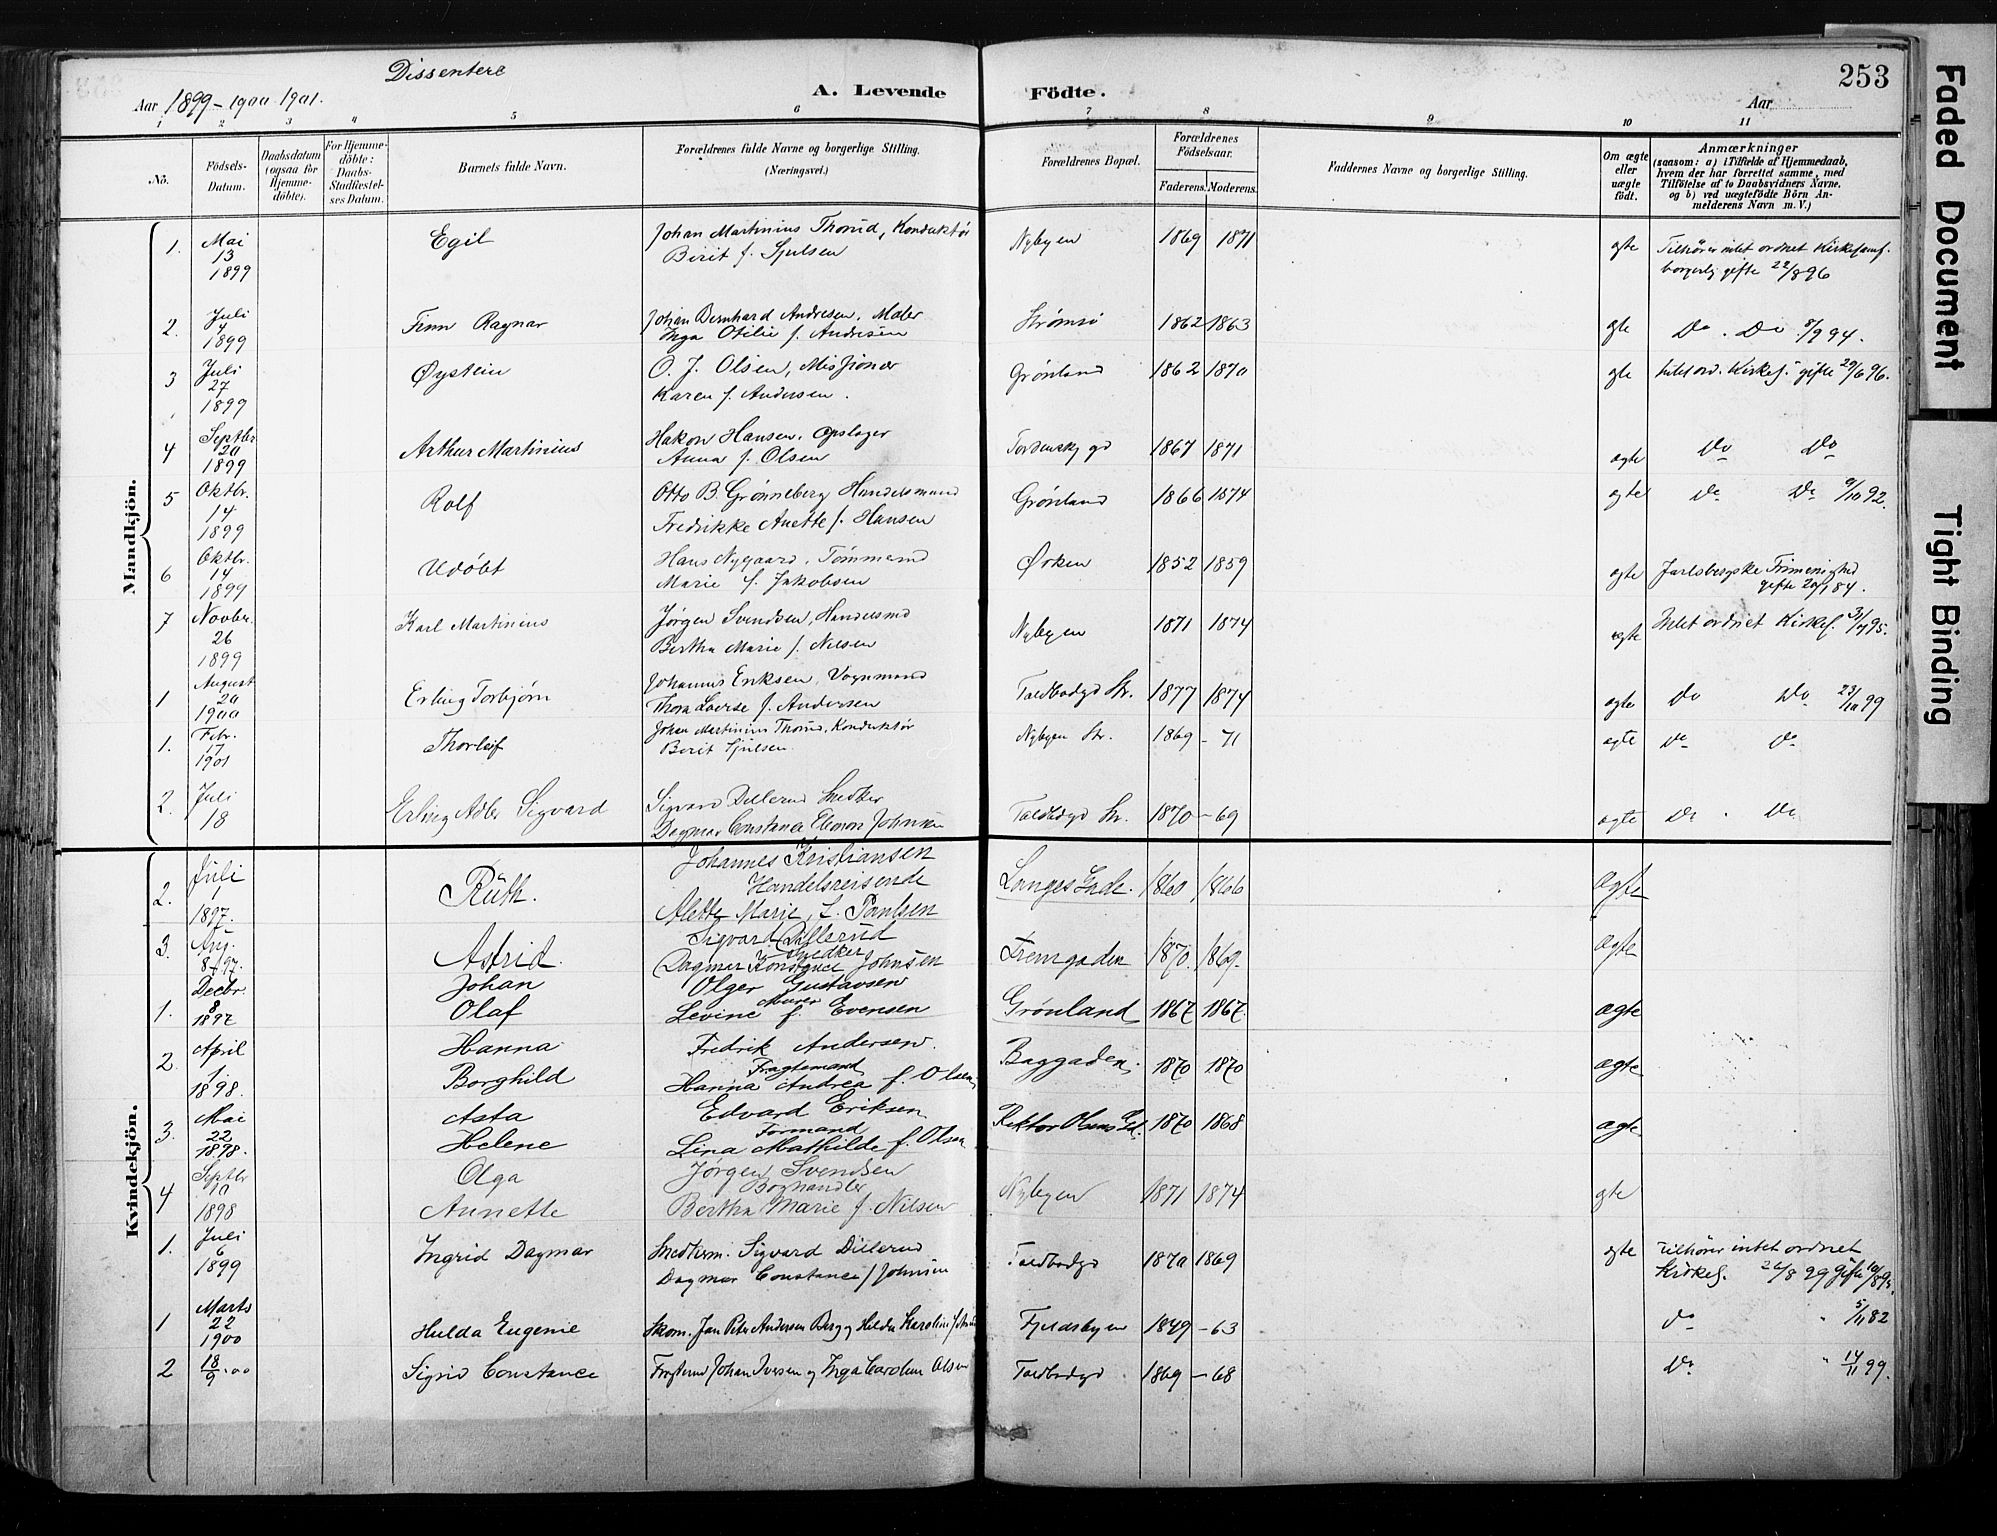 Dissentere
253
Aar 1899 - 1900 1901.
A. Levende
Födte.
Aar
1 2 3 4 5 6 7 8 9 10 11
No.
Födsels-
Datum.
Daabsdatum
(ogsaa for
Hjemme-
döbte).
For Hjemme-
döbte:
Daabs-
Stadfæstel-
ses Datum.
Barnets fulde Navn.
Forældrenes fulde Navne og borgerlige Stilling.
(Næringsvei.)
Forældrenes Bopæl.
Forældrenes
Födselsaar.
Faderens. Moderens.
Faddernes Navne og borgerlige Stilling.
Om ægte
eller
uægte
födt.
Anmærkninger
(saasom: a) i Tilfælde af Hjemmedaab,
hvem der har forrettet samme, med
Tilföielse af to Daabsvidners Navne.
og b) ved uægtefödte Börn An-
melderens Navn m. V.)
Mandkjön.
1. Mai 13 1899 Egil
Johan Martinius Thorud, Konduktør
Berit f. Sjulsen
Nybyen 1869 1871 ægte
Tilhører intet ordnet Kirkesamf.
borgerlig gifte 22/8 96
2. Juli 4 1899 Finn Ragnar
Johan Bernhard Andresen, Maler
Inga Otilie f. Andresen
Strømsø 1862 1863 ægte Do. Do 8/9 94.
3 Juli 27 1899 Øystein
O. J. Olsen, Missjionær
Karen f. Andersen.
Grønland 1862 1870 ægte Intet ord. Kirkes. gifte 29/6 96.
4 Septbr 20 1899 Arthur Martinius
Hakon Hansen, Opslager
Anna f. Olsen
Tordensk gd 1867 1871 ægte Do Do
5 Oktbr. 14 1899 Rolf
Otto B. Grønneberg Handelsmand
Fredrikke Anette f. Hansen
Grønland 1866 1874 ægte Do Do 9/10 92.
6 Oktbr. 14 1899 Udöbt
Hans Nygaard, Tømmand
Marie f. Jakobsen
Ørken 1852 1859 ægte
Jarlsbergske Frimenighed
gifte 20/1 84.
7 Novbr. 26 1899 Karl Martinius
Jørgen Svendsen, Handelsmd
Bertha Marie f. Nilsen
Nybyen 1871 1874 ægte Intet ordnet Kirkes. 31/7 95.
1 August 20 1900 Erling Torbjørn
Johannis Eriksen, Vognmand
Thora Lovise f. Andersen
Toldbodgd Str. 1877 1874 ægte Do Do 23/10 99
1. Febr. 17 1901 Thorleif
Johan Martinius Thorud, Konduktør
Berit Sjulsen
Nybyen Str. 1869 - 71 ægte Do Do
2. Juli 18 Erling Adler Sigvard
Sigvard Dillerud Snedker
Dagmar Constance Eleonor Johnsen
Toldbodgd Str. 1870 - 69 ægte Do Do
Kvindekjön.
2. Juli 1 1897. Ruth.
Johannes Kristiansen
Handelsreisende
Alette Marie, f. Paulsen
Langes Gade. 1860 1866 ægte
3. Aug. 8 97. Astrid.
Sigvard Dillerud
Snedker
Dagmar Konstance Johnsen
Fremgaden 1870. 1869. ægte
1. Decbr. 8 1897 Johan Olaf
Olger Gustavsen
Murer
Levine f. Evensen
Grønland 1867 1867. ægte
2. April 1. 1898. Hanna Borghild
Fredrik Andersen.
Fragtemand
Hanna Andrea f. Olsen
Baggaden. 1870 1870 ægte
3. Mai 22 1898. Asta Helene
Edvard Eriksen
Formand
Lina Mathilde f. Olsen
Rektor Olsens Gd. 1870 1868 ægte
4 Septbr 10 1898 Olga Annette
Jørgen Svendsen
Boghandler
Bertha Marie f. Nilsen
Nybyen 1871 1874 ægte
1. Juli 6 1899 Ingrid Dagmar
Snedkerm. Sigvard Dillerud
Dagmar Constance f Johnsen
Toldbodgd 1870 1869 ægte
Tilhører intet ordnet
Kirkes. 26/8 99 Gifte 10/8 95.
1 Marts 22 1900 Hulda Eugenie
Skom. Jan Peter Andersen Berg og Hilda Karoline
Fjeldsbyen 1849 - 63 do " 5/11 82
2 18/9 00 Sigrid Constance
Johan Iversen og Inga Caroline Olsen
Toldbodgd 1869 - 68 Do " 14/11 99.
Faded Document
Tight Binding